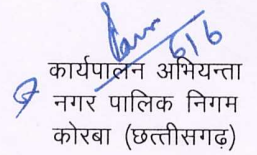 616
कार्यपालन अभियन्ता
नगर पालिक निगम
कोरबा (छत्तीसगढ़)